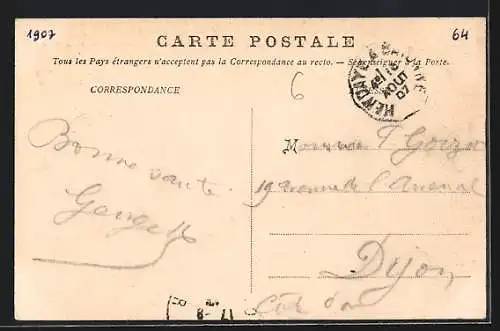 1907
64
CARTE POSTALE
Tous les Pays étrangers n'acceptent pas la Correspondance au recto. — Se renseigner à la Poste.
CORRESPONDANCE
6
HENDAYE
16
AOUT
07
Bonne santé
Monsieur F
19 avenue de l'Arsenal
Dijon
Côte d'or
17-8